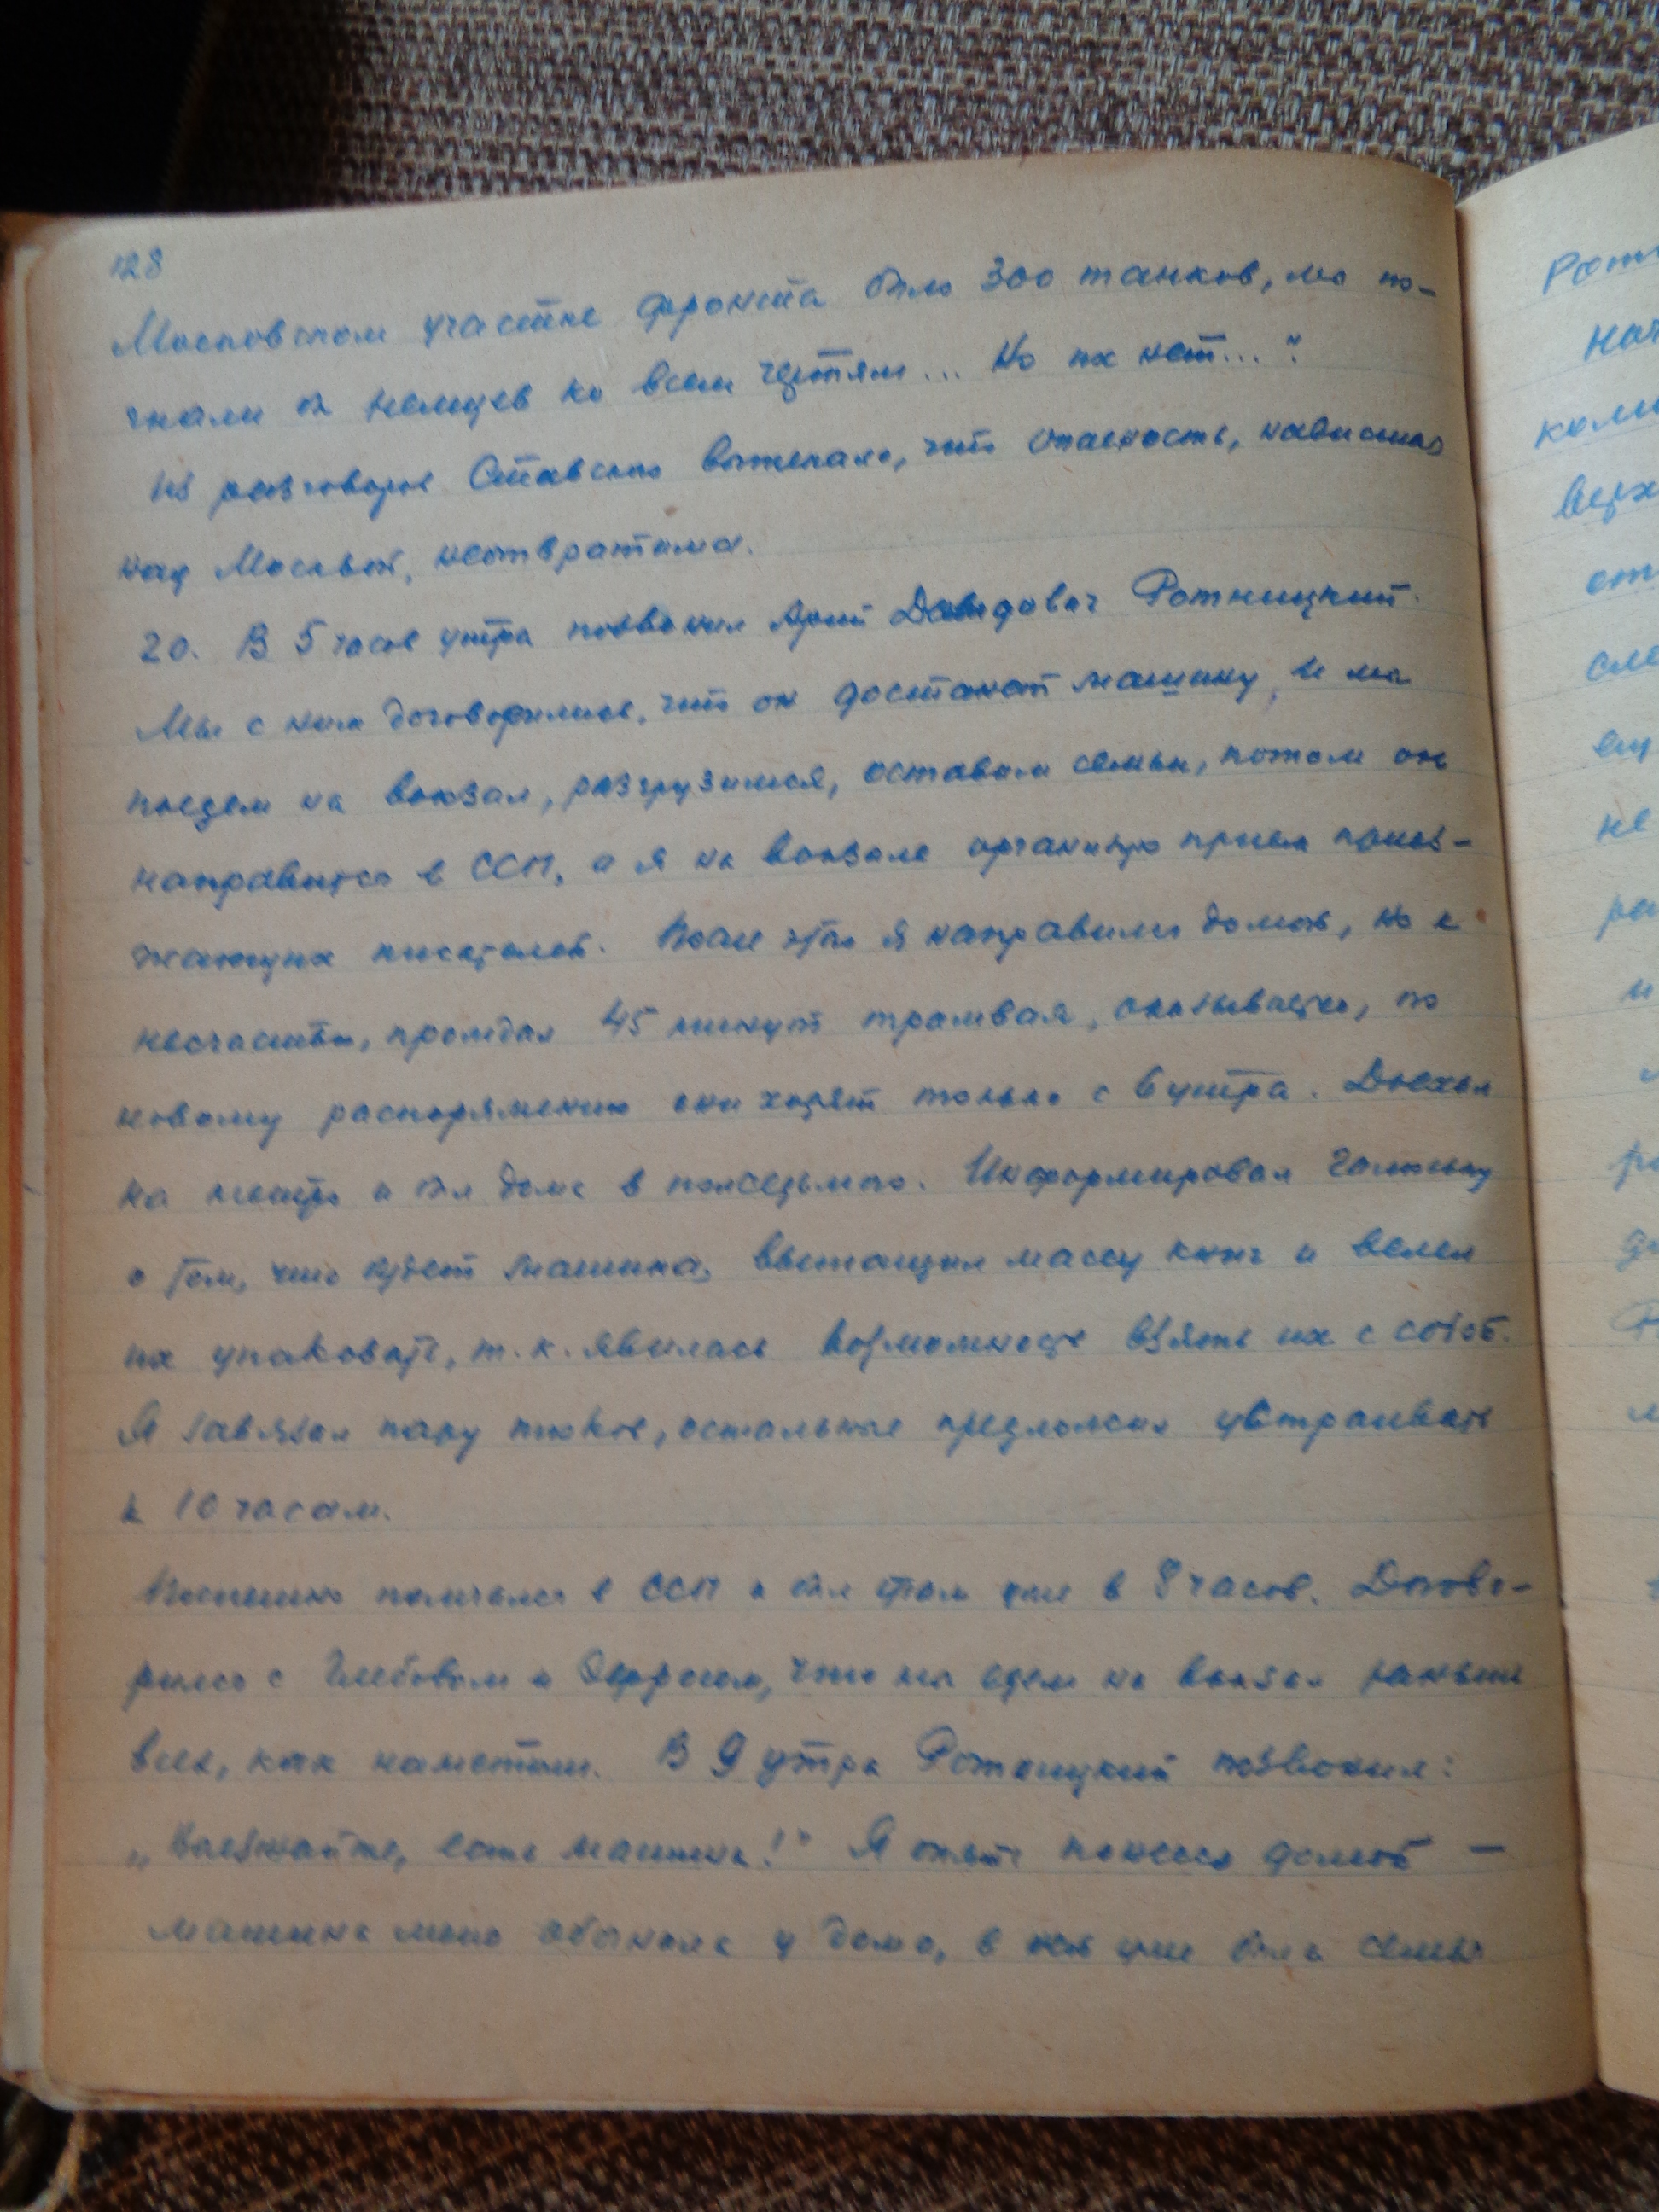 128
Московском участке фронта было 300 танков, мы по-
гнали б немцев ко всем чертям... Но их нет..."
Из разговоров Ставского вытекало, что опасность, нависшая
над Москвой, неотвратима.
20. В 5 часов утра позвонил Арий Давыдович Ротницкий.
Мы с ним договорились, что он достанет машину, и мы
поедем на вокзал, разгрузимся, оставим семьи, потом он
направится в ССП, а я на вокзале организую прием приез-
жающих писателей. После этого я направился домой, но к
несчастью, прождал 45 минут трамвая, оказывается, по
новому распоряжению они ходят только с 6 утра. Доехал
на метро и был дома в полседьмого. Информировал Галюську
о том, что будет машина, вытащил массу книг и велел
их упаковать, т.к. явилась возможность взять их с собой.
Я завязал пару тюков, остальные предложил устраивать
к 10 часам.
Поспешно помчался в ССП и был там уже в 8 часов. Догово-
рился с Глебовым и что мы едем на вокзал раньше
всех, как наметили. В 9 утра Ротницкий позвонил:
„Выезжайте, есть машина!" Я опять понесся домой —
машина меня обогнала у дома, в ней уже была семья
Рот
не
и